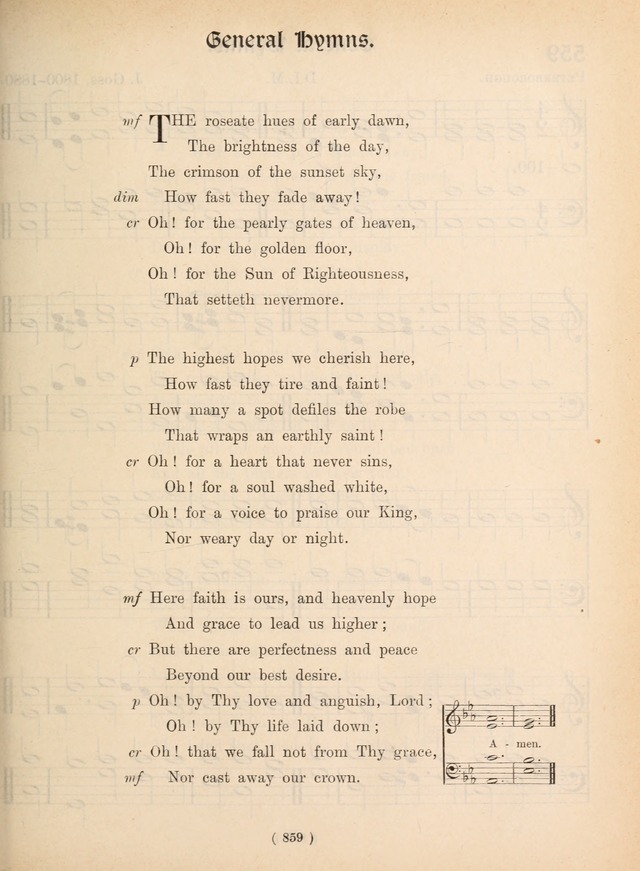 General Hymns.
mf THE roseate hues of early dawn,
The brightness of the day,
The crimson of the sunset sky,
dim How fast they fade away!
cr Oh! for the pearly gates of heaven,
Oh! for the golden floor,
Oh! for the Sun of Righteousness,
That setteth nevermore.
p The highest hopes we cherish here,
How fast they tire and faint!
How many a spot defiles the robe
That wraps an earthly saint!
cr Oh! for a heart that never sins,
Oh! for a soul washed white,
Oh! for a voice to praise our King,
Nor weary day or night.
mf Here faith is ours, and heavenly hope
And grace to lead us higher;
cr But there are perfectness and peace
Beyond our best desire.
p Oh! by Thy love and anguish, Lord;
Oh! by Thy life laid down;
cr Oh! that we fall not from Thy grace,
mf Nor cast away our crown.
A - men.
( 859 )